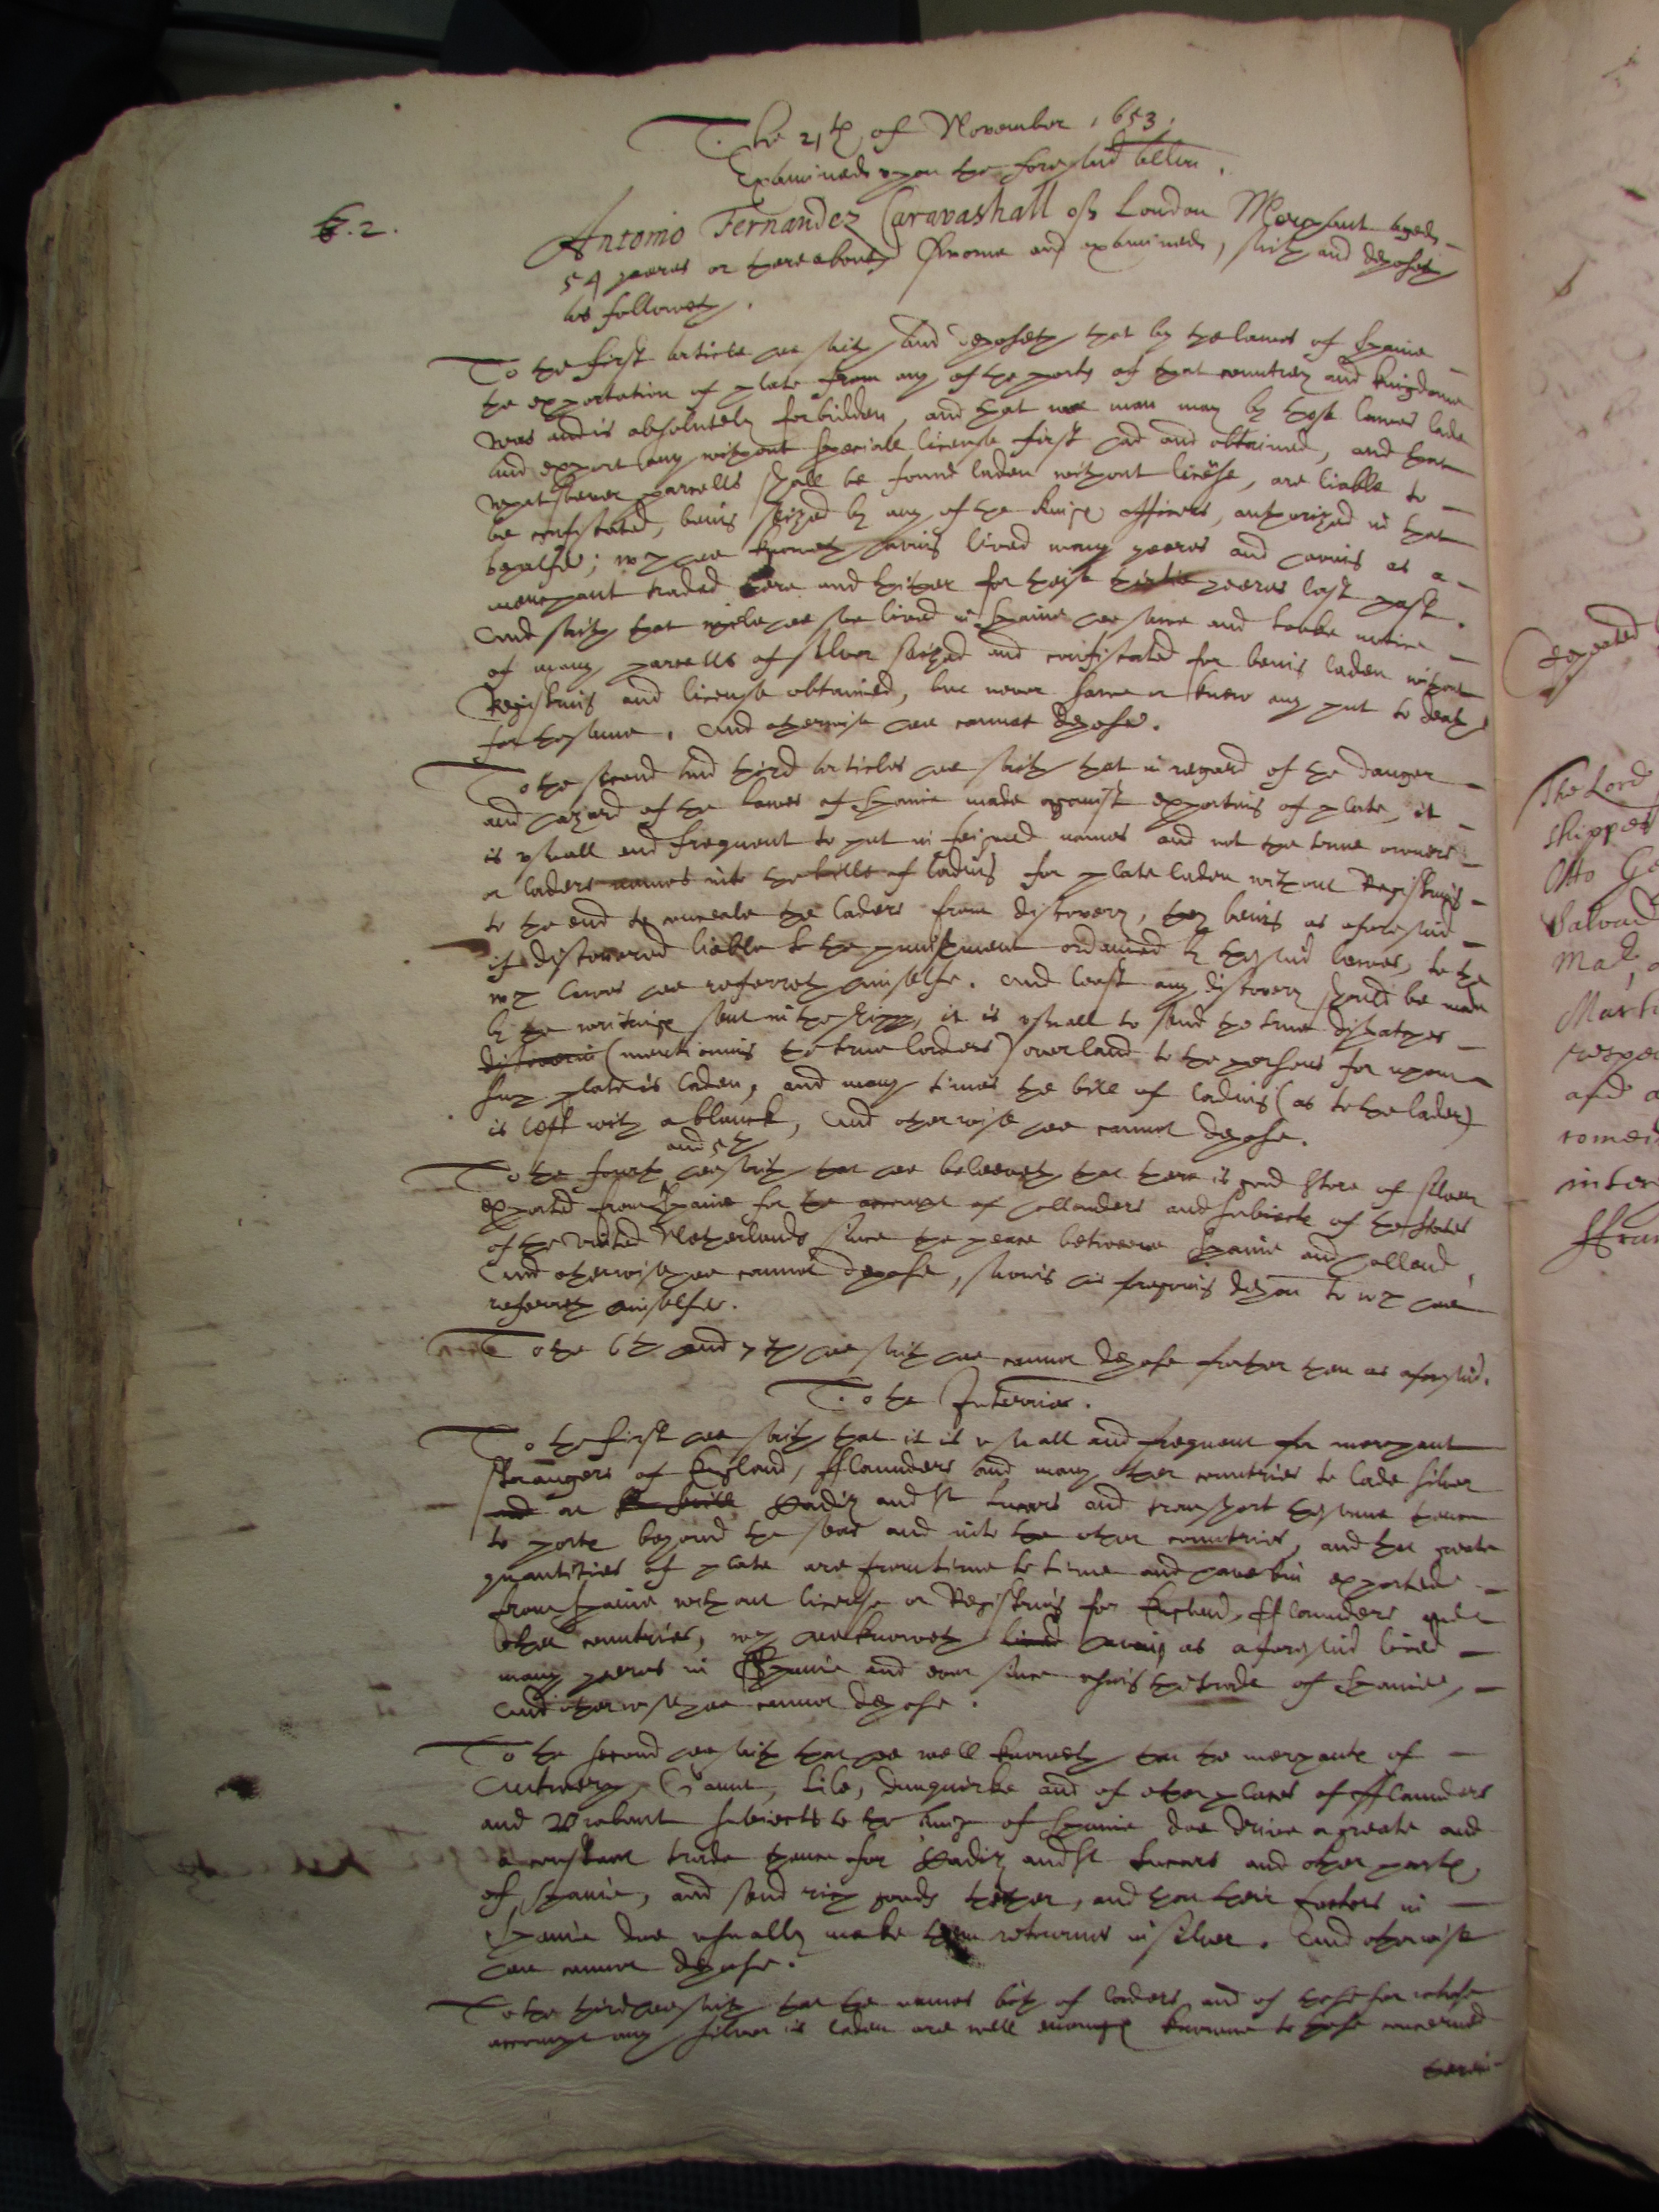 The 21th of November 1653.
Examined upon the foresaid allon.
E. 2.
Antonio Fernandez Caravashall of London Merchant aged
54 yeeres or thereabouts sworne and examined, saith and deposeth
as followeth.
To the first article hee saith and deposeth that by the lawes of Spaine
the exportation of plate from any of the ports of that countrey and kingdome
was and is absolutely forbidden, and that noe man may by those lawes lade
and export any without speciall license first had and obtained, and that
whatsoever parcells shall be found laden without license, are liable to
be confiscated, being seized by any of the kings officers, authorized in that
behalfe; wch hee knoweth having lived many yeeres and having as a
merchant traded there and thither for theise thirtie yeeres last past.
And saith that while hee soe lived in Spaine hee sawe and tooke notice
of many parcells of silver seized and confiscated for being laden without
Registring and license obtained, but never sawe or knew any put to death
for the same, And otherwise hee cannot depose.
To the second and third articles hee saith that in regard of the danger
and hazard of the lawes of Spaine made against exporting of plate, it
is usuall and frequent to put in feigned names and not the true owners
or laders names into the bills of lading for plate laden without Registring
to the end to conceale the laders from discovery, they being as aforesaid
if discovered liable to the punishment ordained by the said lawes, to the
wch lawes hee referreth himselfe. And least any discovery should be made
by the writings sent in the shipp, it is usuall to send the true dispatches
discoverie (mentioning the true laders) overland to the persons for whom
such plate is laden, and many times the bill of lading (as to the lader)
is left with a blanck, And otherwise hee cannot depose.
and 5th
To the fourth hee saith that hee beleeveth that there is good store of silver
exported from Spaine for the accompt of hollanders and subiects of the States
of the United Netherlands since the peace betweene Spaine and holland,
And otherwise hee cannot depose, saving his foregoing deposition to wch hee
referreth himselfe.
To the 6th and 7th hee saith hee cannot depose further then as aforesaid.
To the Interries.
To the first hee saith that it is usuall and frequent for merchant
strangers of England, fflaunders and many other countries to lade silver
and at Cadiz and St Lucars and transport the same thence
to ports beyond the seas and into the other countries, and that greate
quantities of plate are from time to time and have bin exported
from Spaine without license or Registring for England, fflaunders and
other countries, wch hee knoweth lived having as aforesaid lived
many yeeres in Spaine and ever since using the trade of Spaine,
And otherwise hee cannot depose.
To the second hee saith that hee well knoweth that the merchants of
Antwerp, Gaunt, Lile, Dunquirke and of other places of fflaunders
and Brabant subiects to the king of Spaine doe drive a greate and
a constant trade thence for Cadiz and St Lucars and other ports
of Spaine, and send rich goods thither, and that their factors in
Spaine doe usually make them returnes in silver. And otherwise
hee cannot depose.
To the third hee saith that the names both of laders and of those for whose
accompt any silver is laden are well enough knowne to those concerned
therein
The Lord
shipped
Otto Ge
Salvad
Mad
Mart
respe
and
inter
ffran